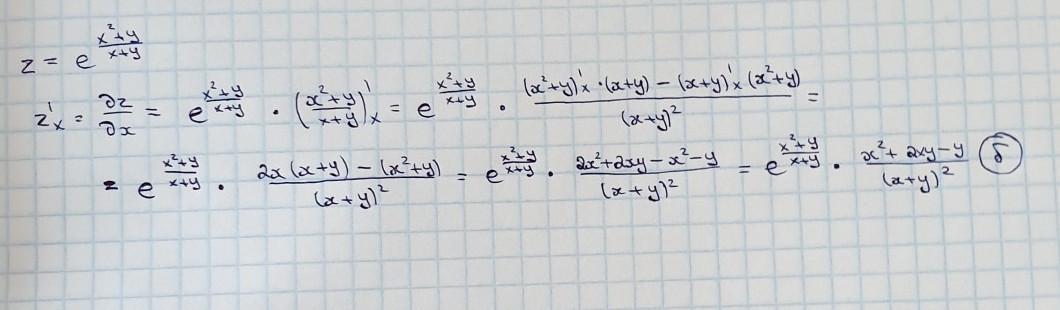 z = e^((x²+y)/(x+y))
z'ₓ = ∂z/∂x = e^((x²+y)/(x+y)) · ((x²+y)/(x+y))'ₓ = e^((x²+y)/(x+y)) · ((x²+y)'ₓ·(x+y) − (x+y)'ₓ(x²+y))/(x+y)² =
= e^((x²+y)/(x+y)) · (2x(x+y) − (x²+y))/(x+y)² = e^((x²+y)/(x+y)) · (2x²+2xy−x²−y)/(x+y)² = e^((x²+y)/(x+y)) · (x²+2xy−y)/(x+y)² б